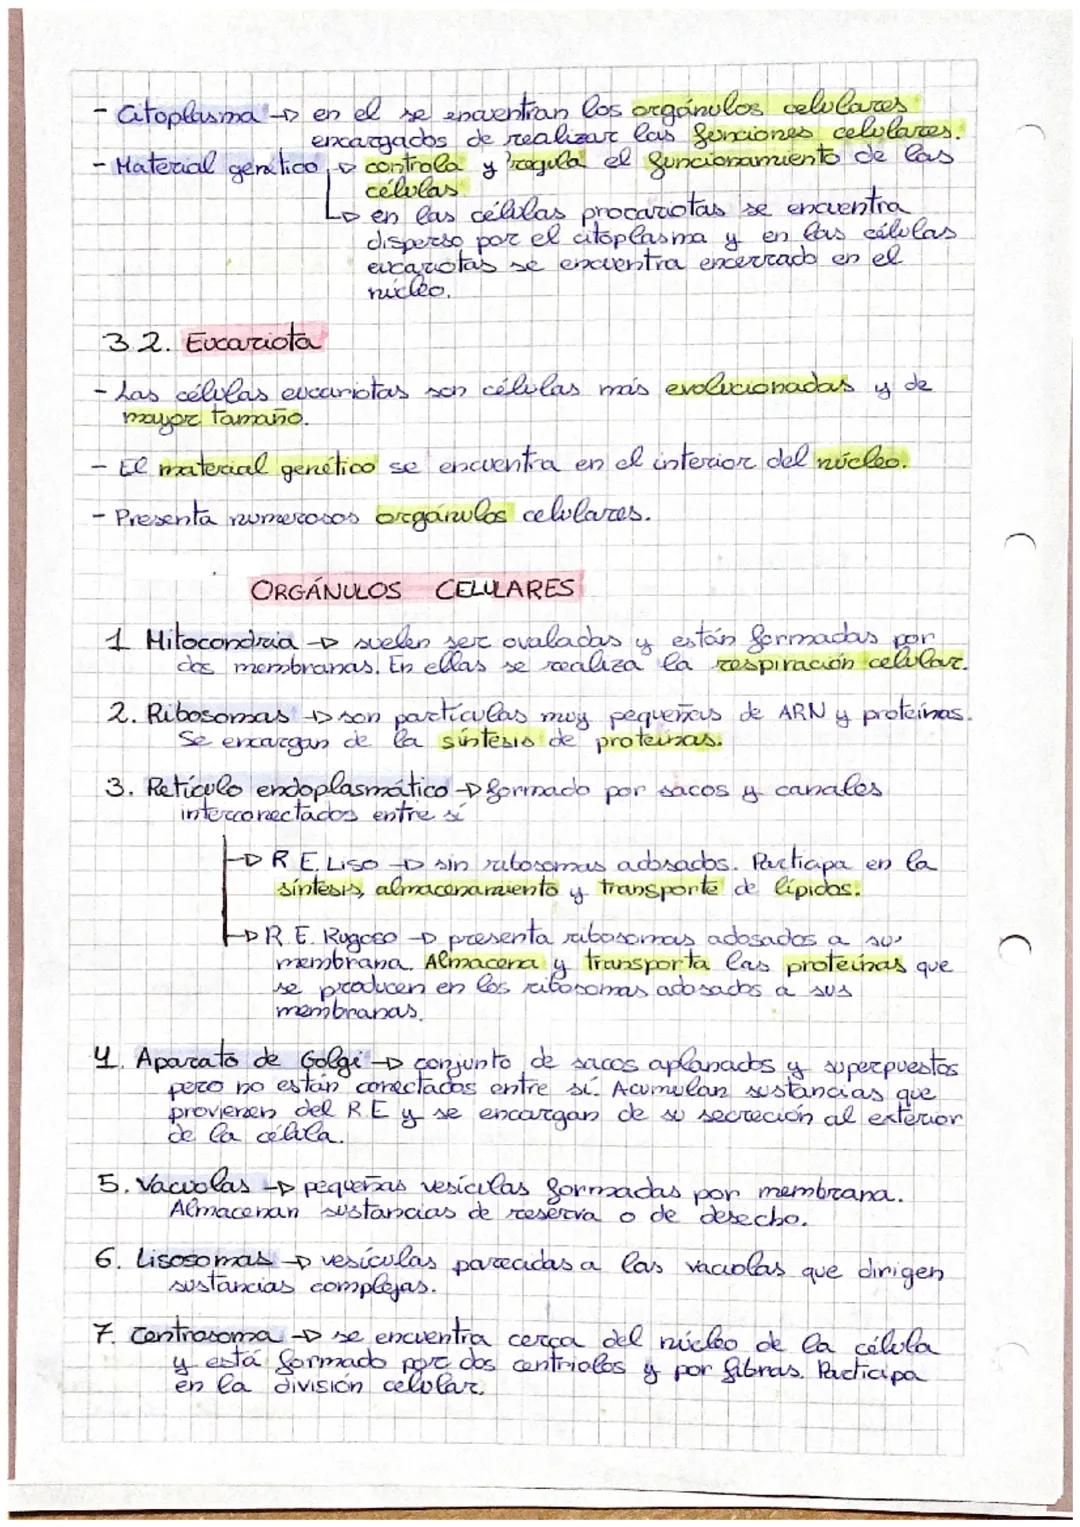 - Citoplasma → en el se encuentran los orgánulos celulares
encargados de realizar las funciones celulares.
- Material genético → controla y regula el funcionamiento de las
células.
→ en las células procariotas se encuentra
disperso por el citoplasma y en las células
eucariotas se encuentra encerrado en el
núcleo.
3.2. Eucariota
- Las células eucariotas son células más evolucionadas y de
mayor tamaño.
- El material genético se encuentra en el interior del núcleo.
- Presenta numerosos orgánulos celulares.
ORGÁNULOS CELULARES
1 Mitocondria → suelen ser ovaladas y están formadas por
dos membranas. En ellas se realiza la respiración celular.
2. Ribosomas → son partículas muy pequeñas de ARN y proteínas.
Se encargan de la síntesis de proteinas.
3. Retículo endoplasmático → formado por sacos y canales
interconectados entre sí
→ R.E. Liso → sin ribosomas adosados. Participa en la
síntesis, almacenamiento y transporte de lípidos.
→ R.E. Rugoso → presenta ribosomas adosados a su
membrana. Almacena y transporta las proteínas que
se producen en los ribosomas adosados a sus
membranas.
4. Aparato de Golgi → conjunto de sacos aplanados y superpuestos
pero no están conectados entre sí. Acumulan sustancias que
provienen del R.E y se encargan de su secreción al exterior
de la célula.
5. Vacuolas → pequeñas vesículas formadas por membrana.
Almacenan sustancias de reserva o de desecho.
6. Lisosomas → vesículas parecidas a las vacuolas que dirigen
sustancias complejas.
7. Centrosoma → se encuentra cerca del núcleo de la célula
y está formado por dos centriolos y por fibras. Participa
en la división celular.